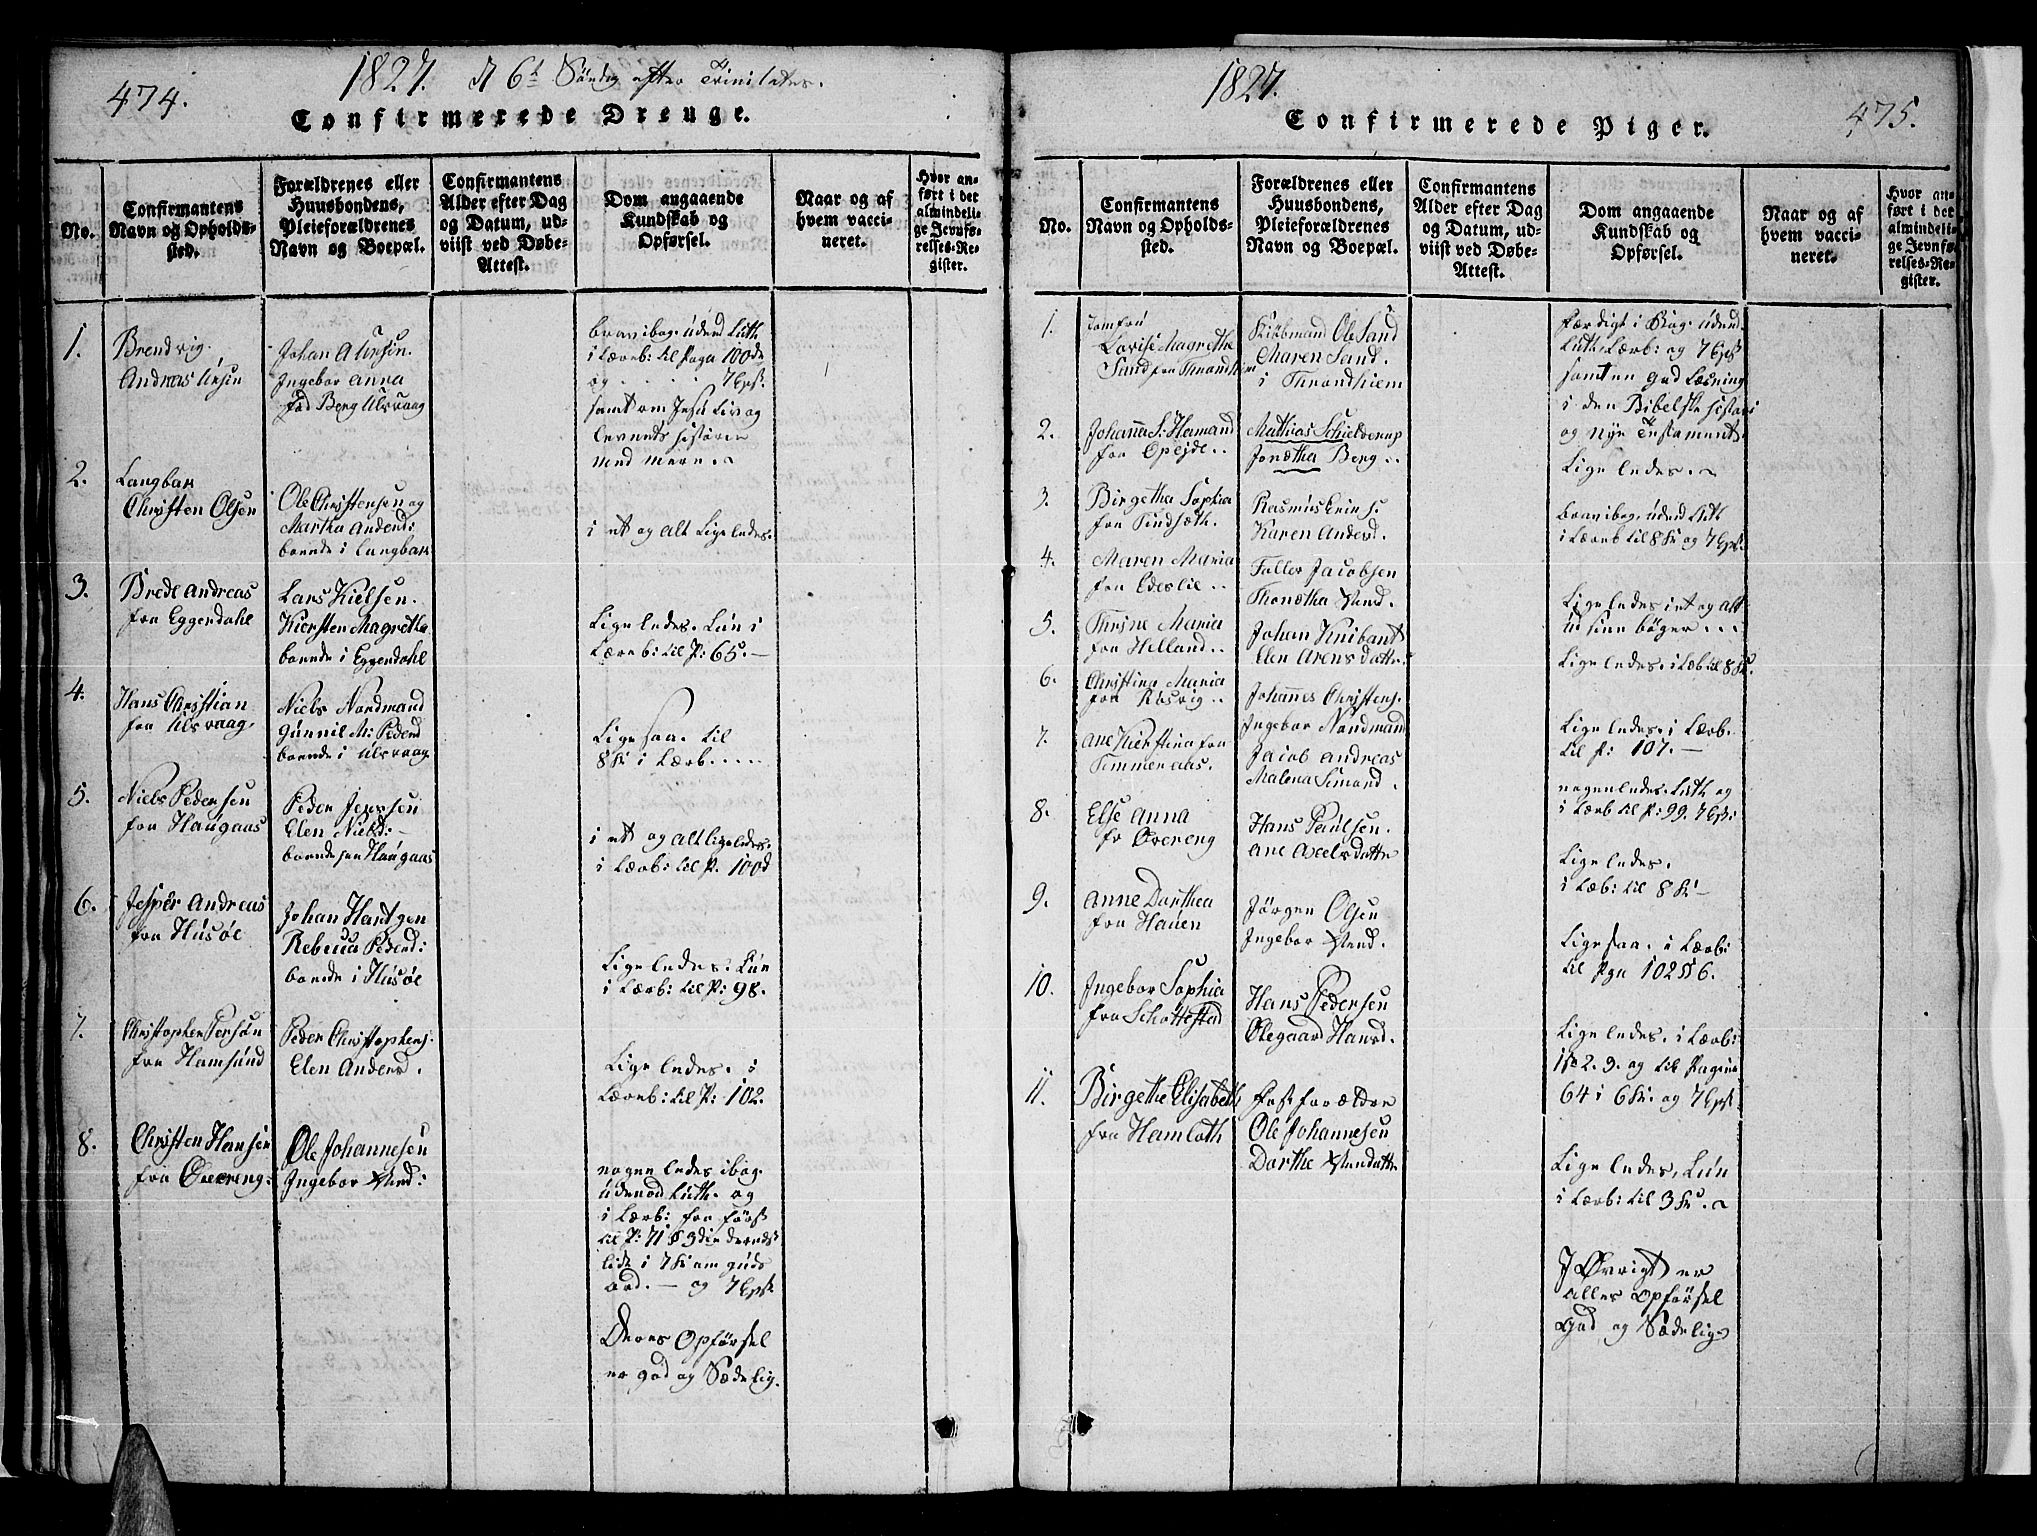 474.
1827. d 6t Söndag efter Trinitates.
Confirmerede Drenge.
No.
Confirmantens
Navn og Opholds-
sted.
Forældrenes eller
Huusbondens,
Pleieforældrenes
Navn og Boepæl.
Confirmantens
Alder efter Dag
og Datum, ud-
viist ved Døbe-
Attest.
Dom angaaende
Kundskab og
Opførsel.
Naar og af
hvem vacci-
neret.
Hvor an-
ført i det
almindeli-
ge Jevnfø-
relses-Re-
gister.
1.
Brendvig
Andreas
Johan
Ingebor Anna
Berg Ulsvaag
udend Luth.
i Læreb: til Paga 100de
og . . . . . 7
samt om Jesu Liv og
Levnets Historie
med mere.
2.
Langbak
Christen Olsen
Ole Christensen og
Martha Andersd:
boende i Langbak
i et og Alt Ligeledes.
3.
Brede Andreas
fra Eggendahl
Lars Kielsen.
Kiersten Magretha
boende i Eggendahl
Ligeledes. Kun i
Læreb: til P: 65. —
4.
Hans Christian
fra Ulsvaag.
Niels Nordmand
Gunnil M: Pedersd
boende i Ulsvaag
Ligesaa. til
8 K i Lærb. . . . .
5.
Niels Pedersen
fra Haugaas
Peder Jenssen
Elen Nielsd: —
boende paa Haugaas
i et og alt ligeledes.
i Lærb: til P. 100d
6.
Jesper Andreas
fra Husøe
Johan Hantgen
Rebecca Pedersd:
boende i Husøe
Ligeledes. Kun
i Lærb: til P: 98.
7.
Christopher Persøn
fra Hamsund
Peder Christophers.
Elen Andersd.
Ligeledes. i
Læreb: til P: 102.
8.
Christen Hansen
fra Övereng:
Ole Johannesen
Ingebor
nogenledes i bog
udenad Luth. og
i Lærb: fra først
til P: 71 § 3
lidt i 7 K om guds
ord. — og 7
Deres Opførsel
er god og Sædelig.
1827.
475.
Confirmerede Piger.
No.
Confirmantens
Navn og Opholds-
sted.
Forældrenes eller
Huusbondens,
Pleieforældrenes
Navn og Boepæl.
Confirmantens
Alder efter Dag
og Datum, ud-
viist ved Døbe-
Attest.
Dom angaaende
Kundskab og
Opførsel.
Naar og af
hvem vacci-
neret.
Hvor an-
ført i det
almindeli-
ge Jevnfø-
relses-Re-
gister.
1.
Jomfru
Lovise Magrethe
Sand fra Throndhiem
Ole Sand
Maren Sand.
i Throndhiem
Færdig i Bog. Udend.
Luth, Lærb: og 7
samt en god Læsning
i den Bibelske historie
og nye Testament.
2.
Johanna S: Hamand
fra Opejde. .
Mathias Schieldverup
Jonetha Berg. .
Ligeledes.
3.
Birgetha Sophia
fra Tindsæth.
Rasmus
Karen Andersd.
udend Luth
i Lærb til 8 K og 7
4.
Maren Maria
fra Edeslie . .
Faller Jacobsen
Thonetha
Ligeledes i et og alt
ud sine böger . . .
5.
Thrine Maria
fra Helland. .
Johan Knibant
Elen Arensdatter
Ligeledes. i Læb til 8 K.
6.
Christina Maria
fra Kosvig . .
Johannes Christens.
Ingebor Nordmand
Ligeledes. i Lærb.
til P: 107. —
7.
Ane Kierstina fra
Timmeraas.
Jacob Andreas
Malena Simond.
nogenledes. Luth og
i Lærb til P: 99. 7
8.
Else Anna
fr Övereng
Hans Paulsen.
Ane Axelsdatter
Ligeledes.
i Læb: til 8 K —
9.
Anne Dorthea
fra Hauen
Jörgen Olsen
Ingebor
Ligesaa. i Lærb:
til Pga 102 § 6.
10.
Ingebor Sophia
fra Schottestad
Hans Pedersen
Olegaar Hansd.
Ligeledes. i Lærb:
2. 3. og til Pagina
64 i 6 K. og 7
11.
Birgethe Elisabeth
fra Hamloth
Fosterforældre
Ole Johannesen
Dorthe
Ligeledes, Kun
i Lærb: til 3 K.
I Övrigt er
alles Opførsel
God og Sædelig